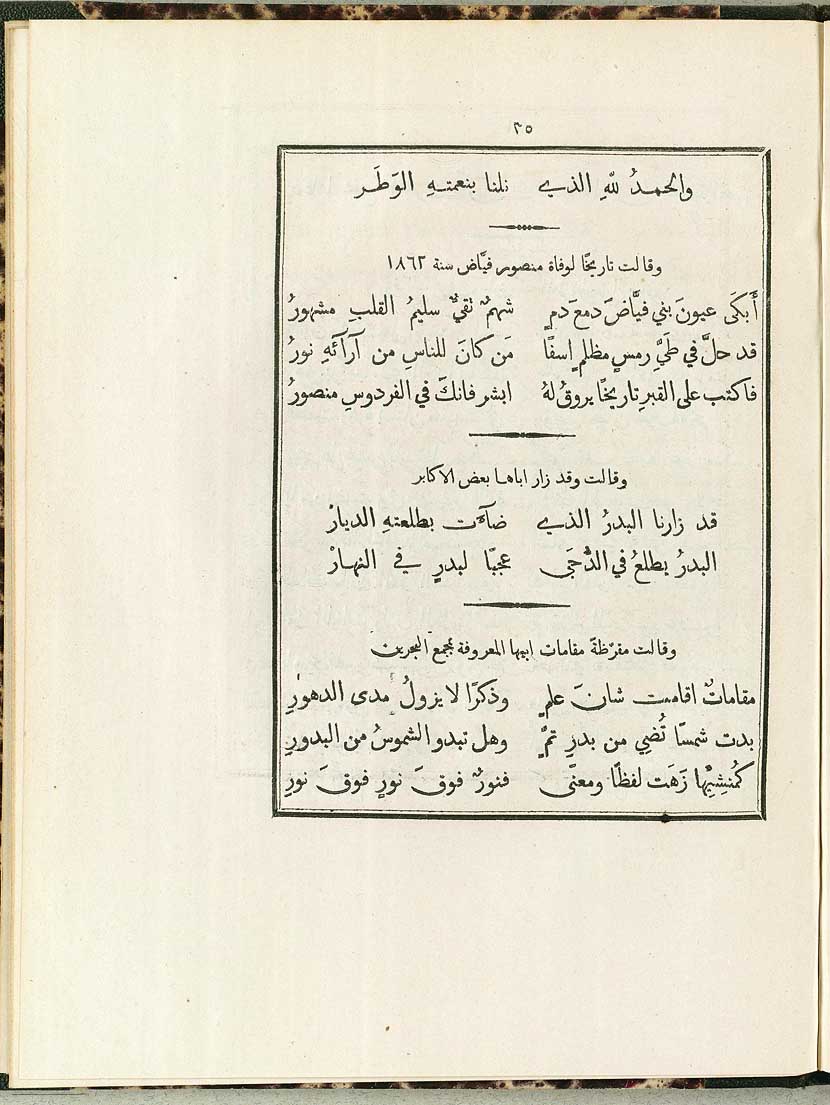 ٣٥
والحمدُ للهِ الذي نلنا بنعمتهِ الوَطَر
وقالت تاريخًا لوفاة منصور فيَّاض سنة ١٨٦٢
أَبكَى عيونَ بني فيَّاضَ دمعَ دمٍ شهمٌ تقيٌّ سليمُ القلبِ مشهورُ
قد حلَّ في طَيِّ رمسٍ مظلمٍ اسفًا مَن كانَ للناسِ من آرآئهِ نورُ
فاكتب على القبرِ تاريخًا يروقُ لهُ ابشر فانكَ في الفردوسِ منصورُ
وقالت وقد زار اباها بعض الاكابر
قد زارنا البدرُ الذي ضآءَت بطلعتهِ الديارْ
البدرُ يطلعُ في الدُّجَى عجبًا لبدرٍ في النهارْ
وقالت مقرّظةً مقامات ابيها المعروفة بمجمع البحرين
مقاماتٌ اقامت شانَ علمٍ وذكرًا لا يزولُ مدى الدهورِ
بدت شمسًا تُضِي من بدرِ تمٍّ وهل تبدو الشموسُ من البدورِ
كمُنشِيِّها زَهَت لفظًا ومعنًى فنورٌ فوقَ نورٍ فوقَ نورِ